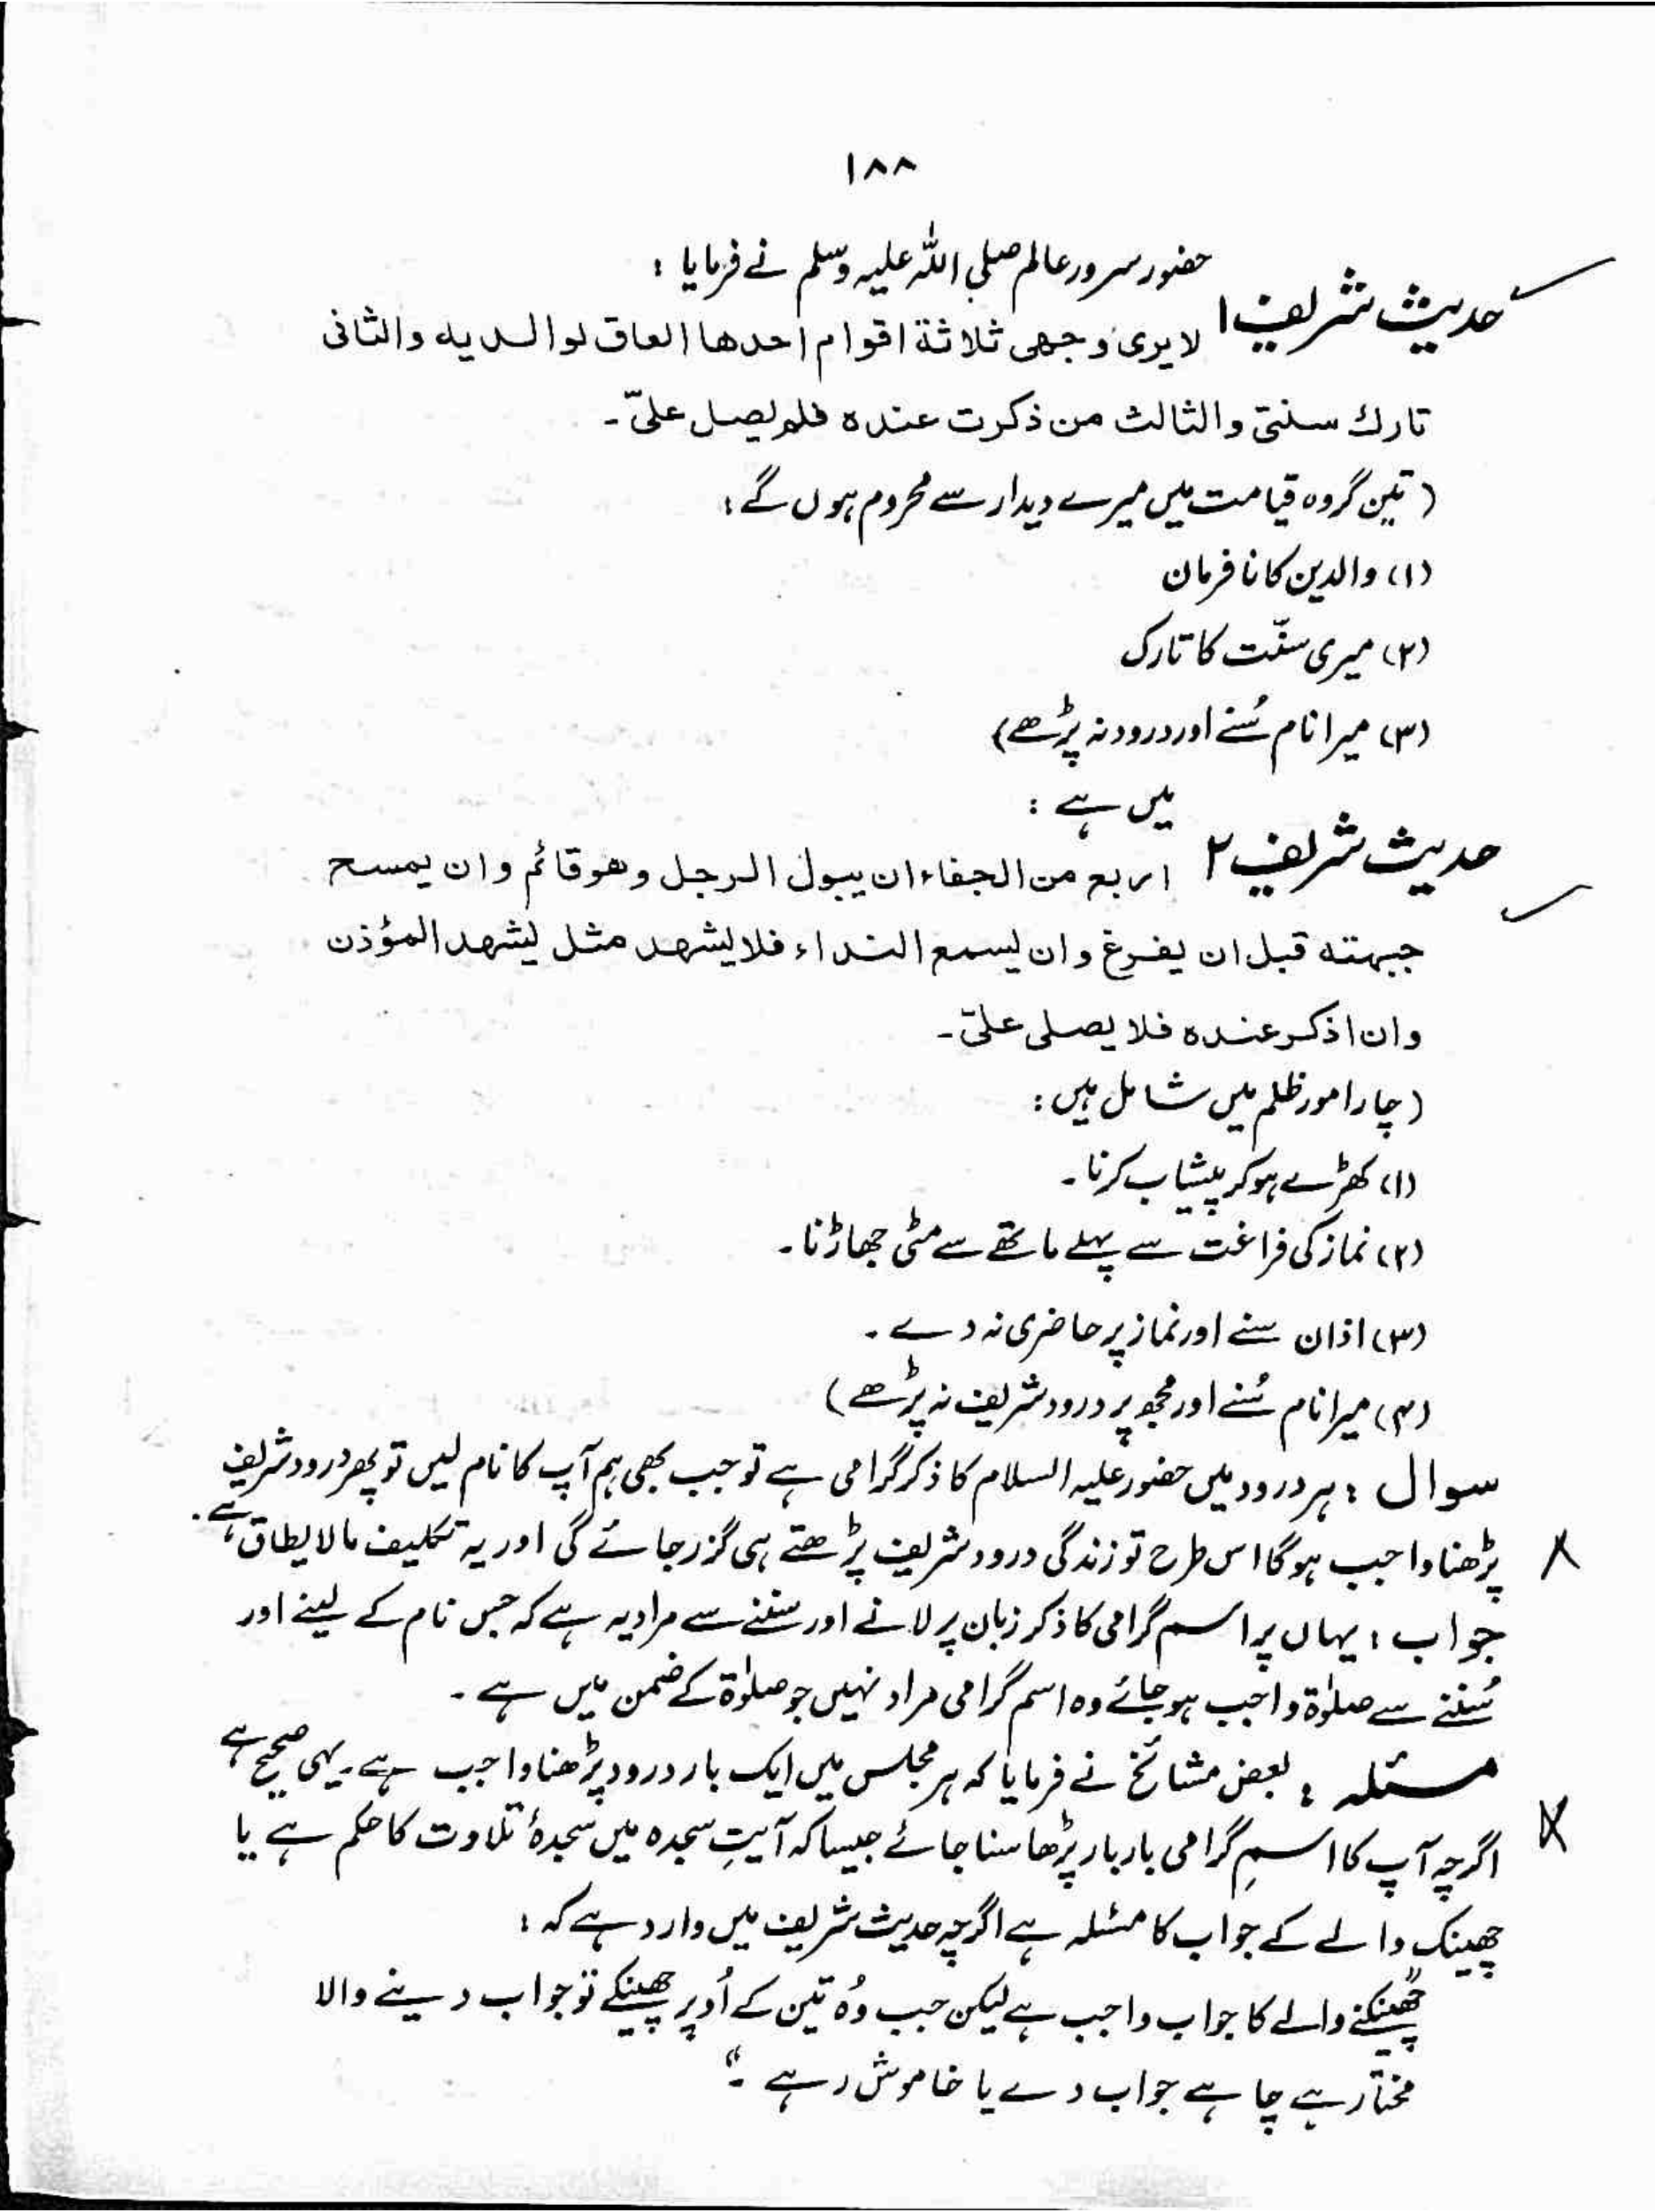 ۱۸۸
حضور سرور عالم صلی اللہ علیہ وسلم نے فرمایا :
حدیث شریف ۱
لا یری وجھی ثلاثة اقوام احدھا العاق لوالدیه والثانی
تارك سنتی والثالث من ذکرت عندہ فلم یصل علیّ۔
( تین گروہ قیامت میں میرے دیدار سے محروم ہوں گے :
(۱) والدین کا نافرمان
(۲) میری سنّت کا تارک
(۳) میرا نام سُنے اور درود نہ پڑھے)
میں ہے :
حدیث شریف ۲
اربع من الجفاء ان یبول الرجل وھو قائم وان یمسح
جبہته قبل ان یفرغ وان یسمع النداء فلا یشھد مثل یشھد المؤذن
وان اذکر عندہ فلا یصلی علیّ۔
( چار امور ظلم میں شامل ہیں :
(۱) کھڑے ہو کر پیشاب کرنا۔
(۲) نماز کی فراغت سے پہلے ماتھے سے مٹی جھاڑنا۔
(۳) اذان سنے اور نماز پر حاضری نہ دے۔
(۴) میرا نام سُنے اور مجھ پر درود شریف نہ پڑھے)
سوال : ہر درود میں حضور علیہ السلام کا ذکر گرامی ہے تو جب بھی ہم آپ کا نام لیں تو پھر درود شریف
پڑھنا واجب ہو گا اس طرح تو زندگی درود شریف پڑھتے ہی گزر جائے گی اور یہ تکلیف مالا یطاق ہے۔
جواب : یہاں پر اسم گرامی کا ذکر زبان پر لانے اور سننے سے مراد یہ ہے کہ جس نام کے لینے اور
سُننے سے صلوٰۃ واجب ہو جائے وہ اسم گرامی مراد نہیں جو صلوٰۃ کے ضمن میں ہے۔
مسئلہ : بعض مشائخ نے فرمایا کہ ہر مجلس میں ایک بار درود پڑھنا واجب ہے۔ یہی صحیح ہے
اگرچہ آپ کا اسمِ گرامی بار بار پڑھا سنا جائے جیسا کہ آیتِ سجدہ میں سجدۂ تلاوت کا حکم ہے یا
چھینک والے کے جواب کا مسئلہ ہے اگرچہ حدیث شریف میں وارد ہے کہ :
”چھینکنے والے کا جواب واجب ہے لیکن جب وُہ تین کے اُوپر چھینکے تو جواب دینے والا
مختار ہے چاہے جواب دے یا خاموش رہے۔“